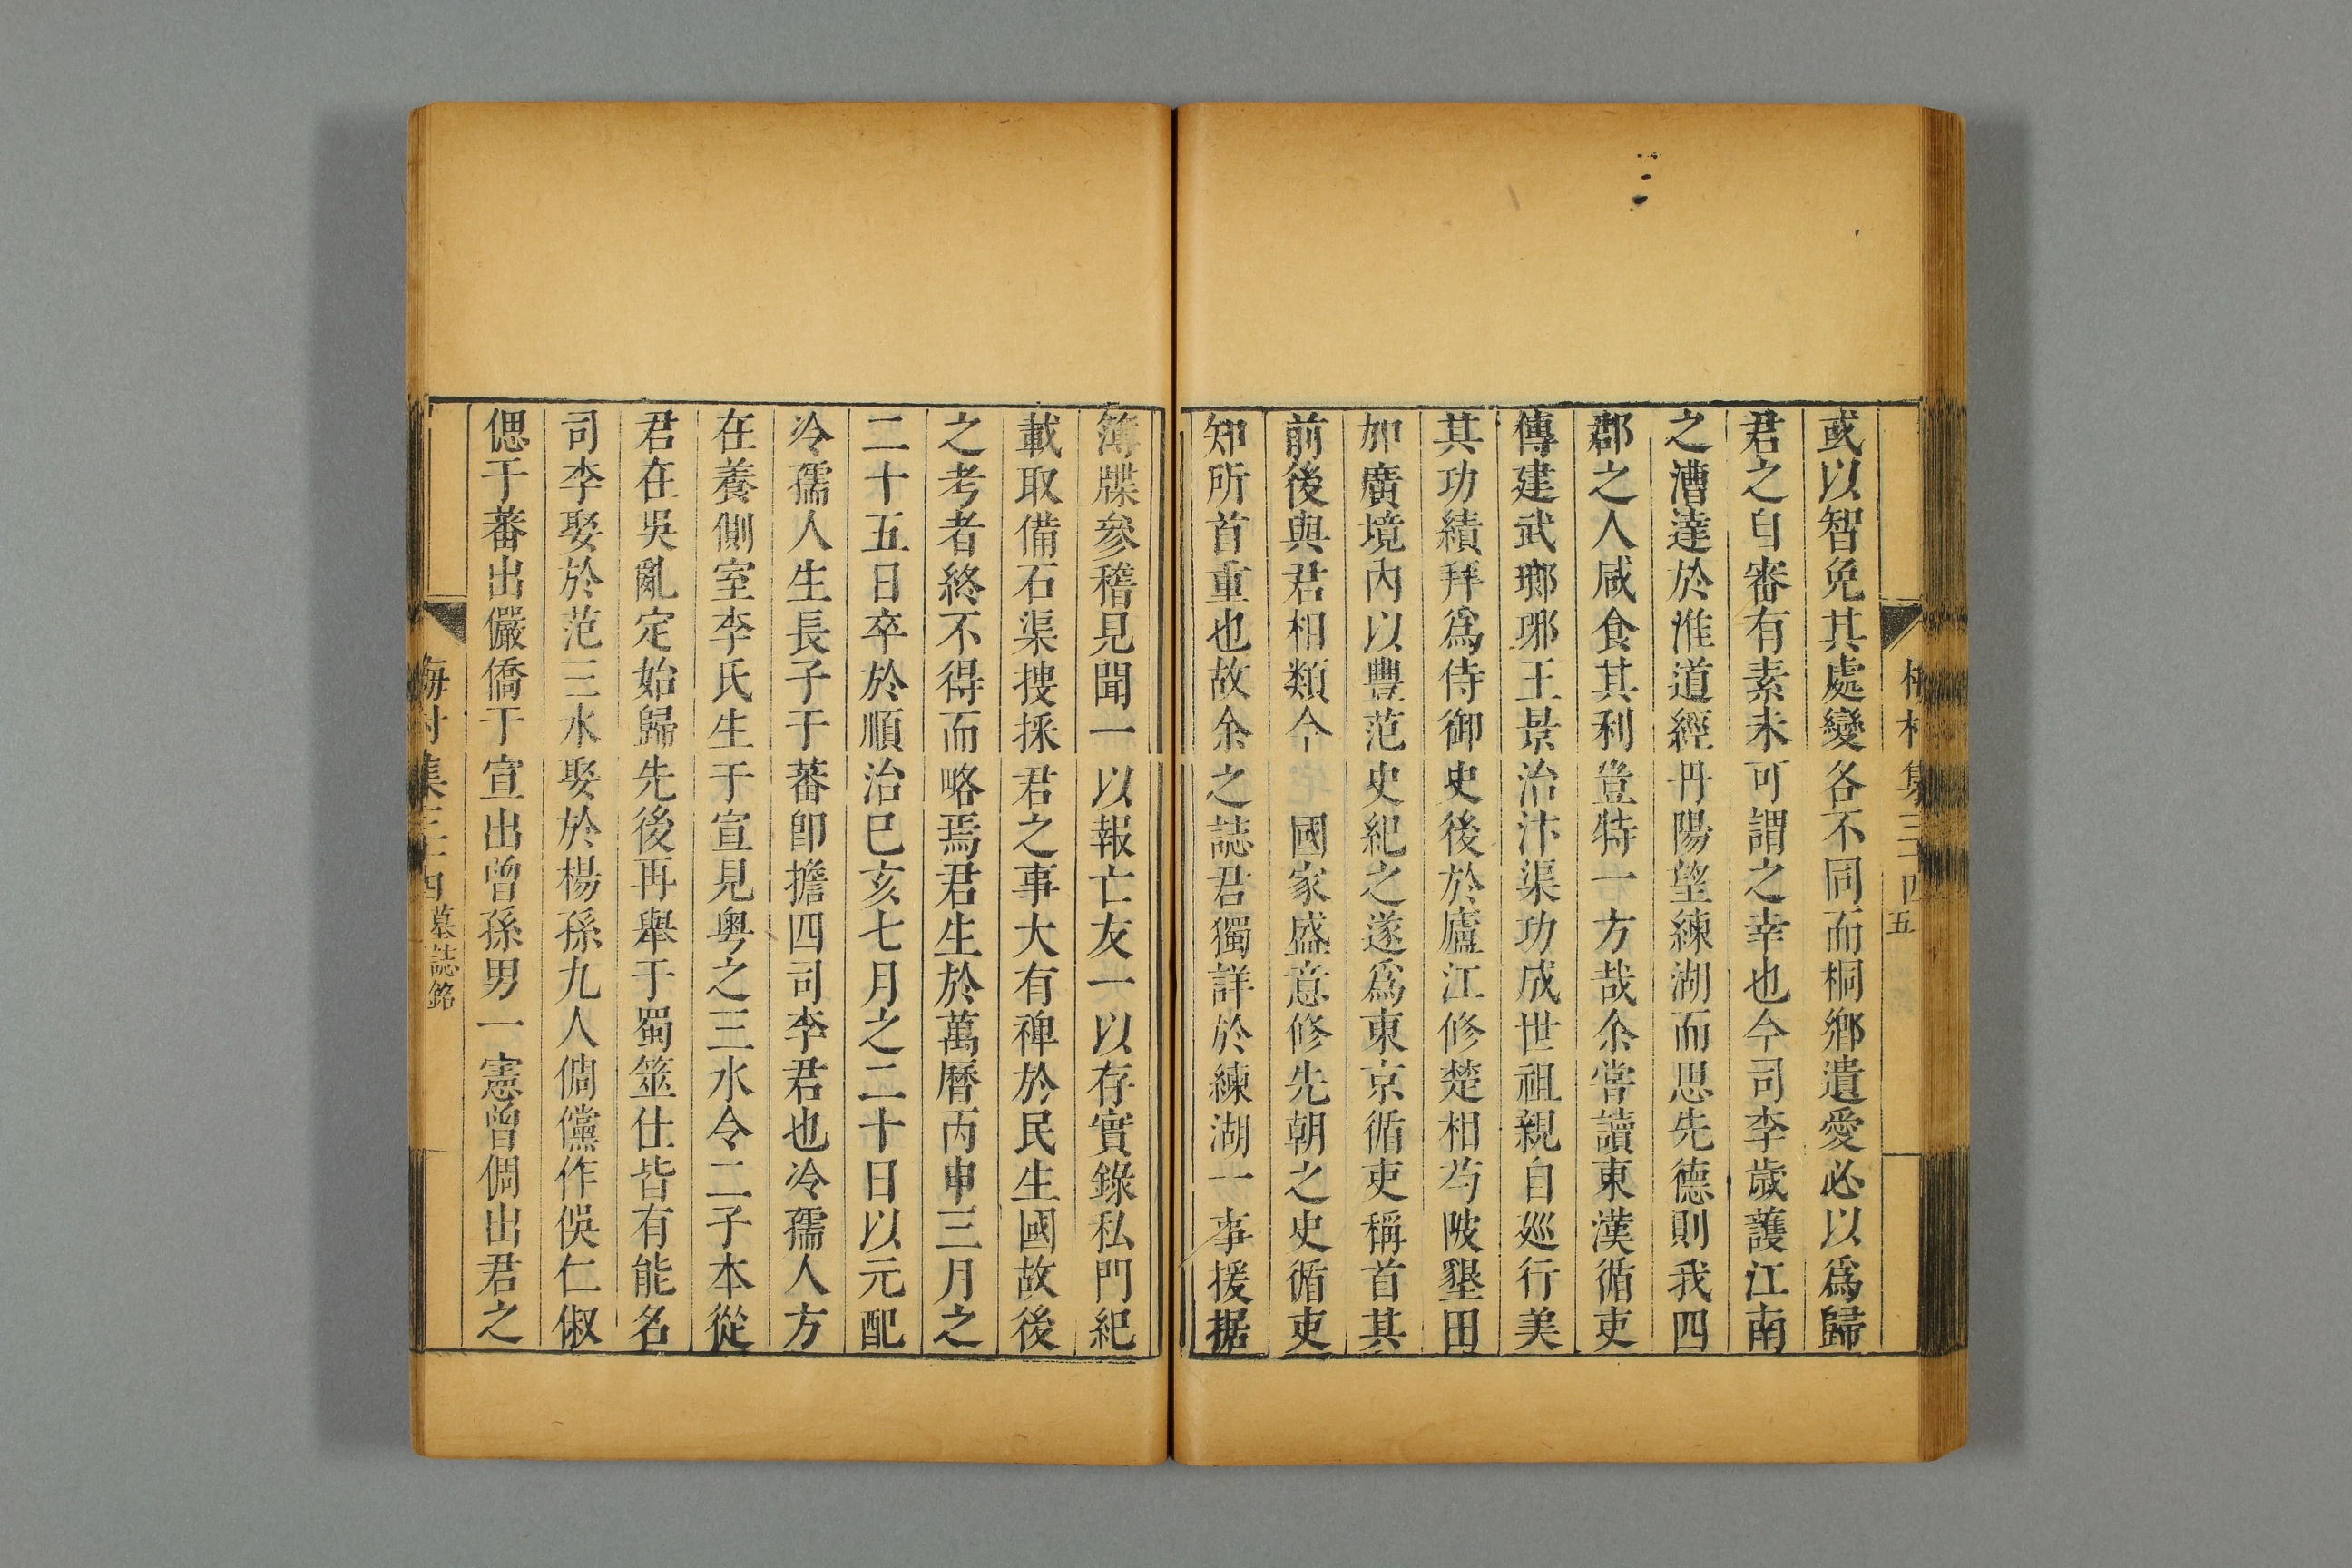 梅村集三十四
五
或以智免其處變各不同而桐鄉遺愛必以爲歸
君之自審有素未可謂之幸也今司李歲護江南
之漕達於淮道經丹陽望練湖而思先德則我四
郡之人咸食其利豈特一方哉余嘗讀東漢循吏
傳建武瑯琊王景治汴渠功成世祖親自廵行美
其功績拜爲侍御史後於廬江修楚相芍陂墾田
加廣境內以豐范史紀之遂爲東京循吏稱首其
前後與君相類今　國家盛意修先朝之史循吏
知所首重也故余之誌君獨詳於練湖一事援据
簿牒參稽見聞一以報亡友一以存實錄私門紀
載取備石渠搜採君之事大有裨於民生國故後
之考者終不得而略焉君生於萬曆丙申三月之
二十五日卒於順治巳亥七月之二十日以元配
冷孺人生長子于蕃卽擔四司李君也冷孺人方
在養側室李氏生于宣見粤之三水令二子本從
君在吳亂定始歸先後再舉于蜀筮仕皆有能名
司李娶於范三水娶於楊孫九人倜儻作俁仁俶
偲于蕃出儼僑于宣出曾孫男一憲曾倜出君之
梅村集三十四
墓誌銘